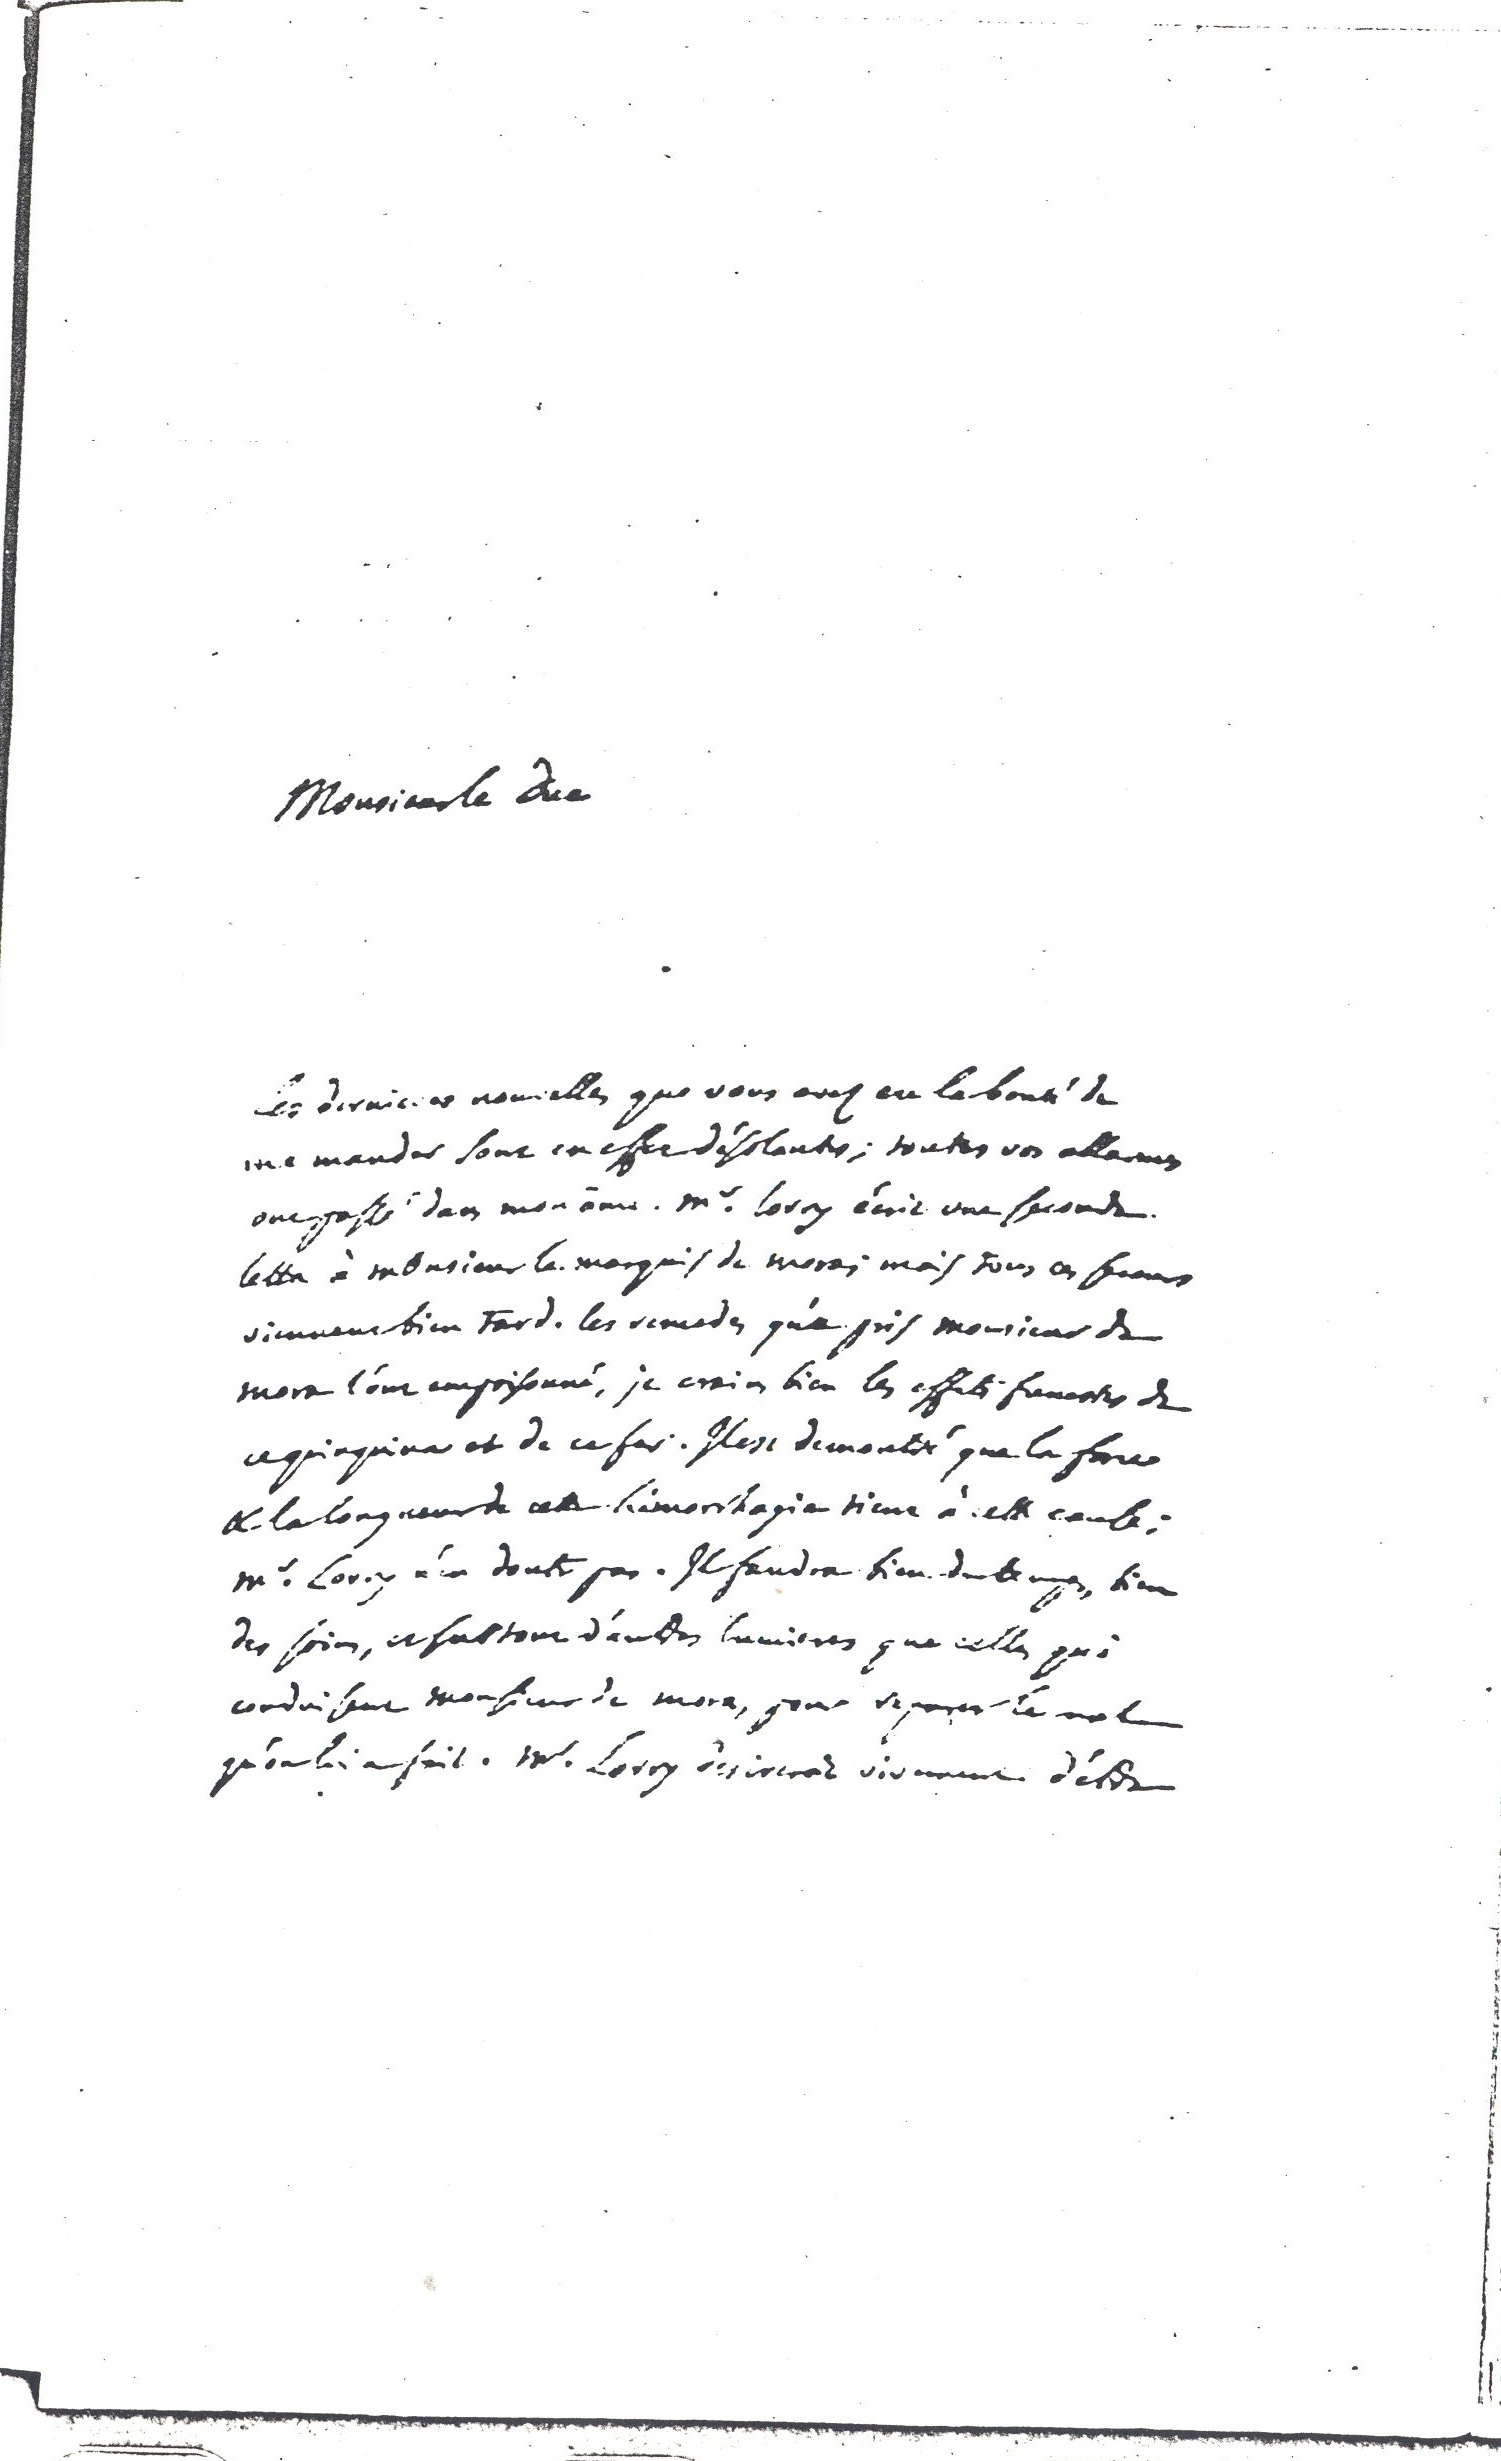 Monsieur le Duc
Les dernieres nouvelles que vous avez eu la bonté de
me mander sont en effet désolantes; toutes vos allarmes
ont passé dans mon âme. Mr. Lorry écrit une seconde
lettre à monsieur le marquis de mora; mais tous ces secours
viennent bien tard. les remedes qu'a pris monsieur de
mora l'ont empoisonné, je crains bien les effets funestes de
ce quinquina et de ce fer. Il est demontré que la force
& la longueur de cette hémorrhagie tient à cette cause;
Mr. Lorry n'en doute pas. Il faudra bien du temps, bien
des soins, et surtout d'autres lumieres que celles qui
conduisent monsieur de mora, pour reparer le mal
qu'on lui a fait. Mr. Lorry desireroit vivement d'être